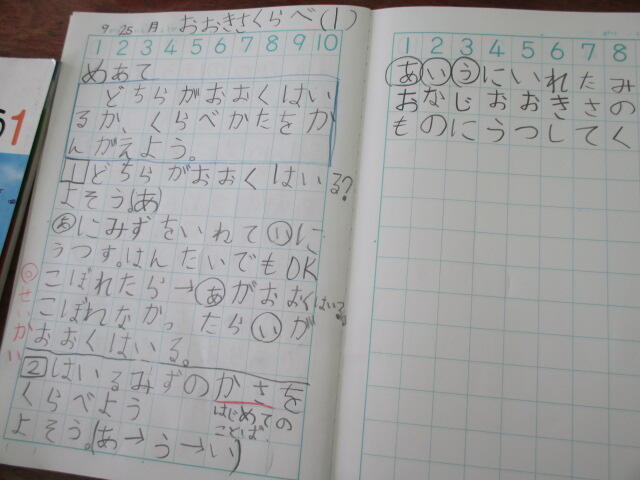 9 25 月 おおきさくらべ(1)
1 2 3 4 5 6 7 8 9 10
めあて
どちらがおおくはい
るか、くらべかたをか
んがえよう。
1 どちらがおおくはいる?
よそう。(あ)
あにみずをいれていに
うつす。はんたいでもOK
こぼれたら→あがおおくはいる。
こぼれなかったらいが
おおくはいる。
◎せいかい
2 はいるみずのかさを
くらべよう
はじめての
ことば。
よそう。(あ→う→い)
1 2 3 4 5 6 7 8
あいうにいれたみ
おなじおおきさの
ものにうつしてく
1